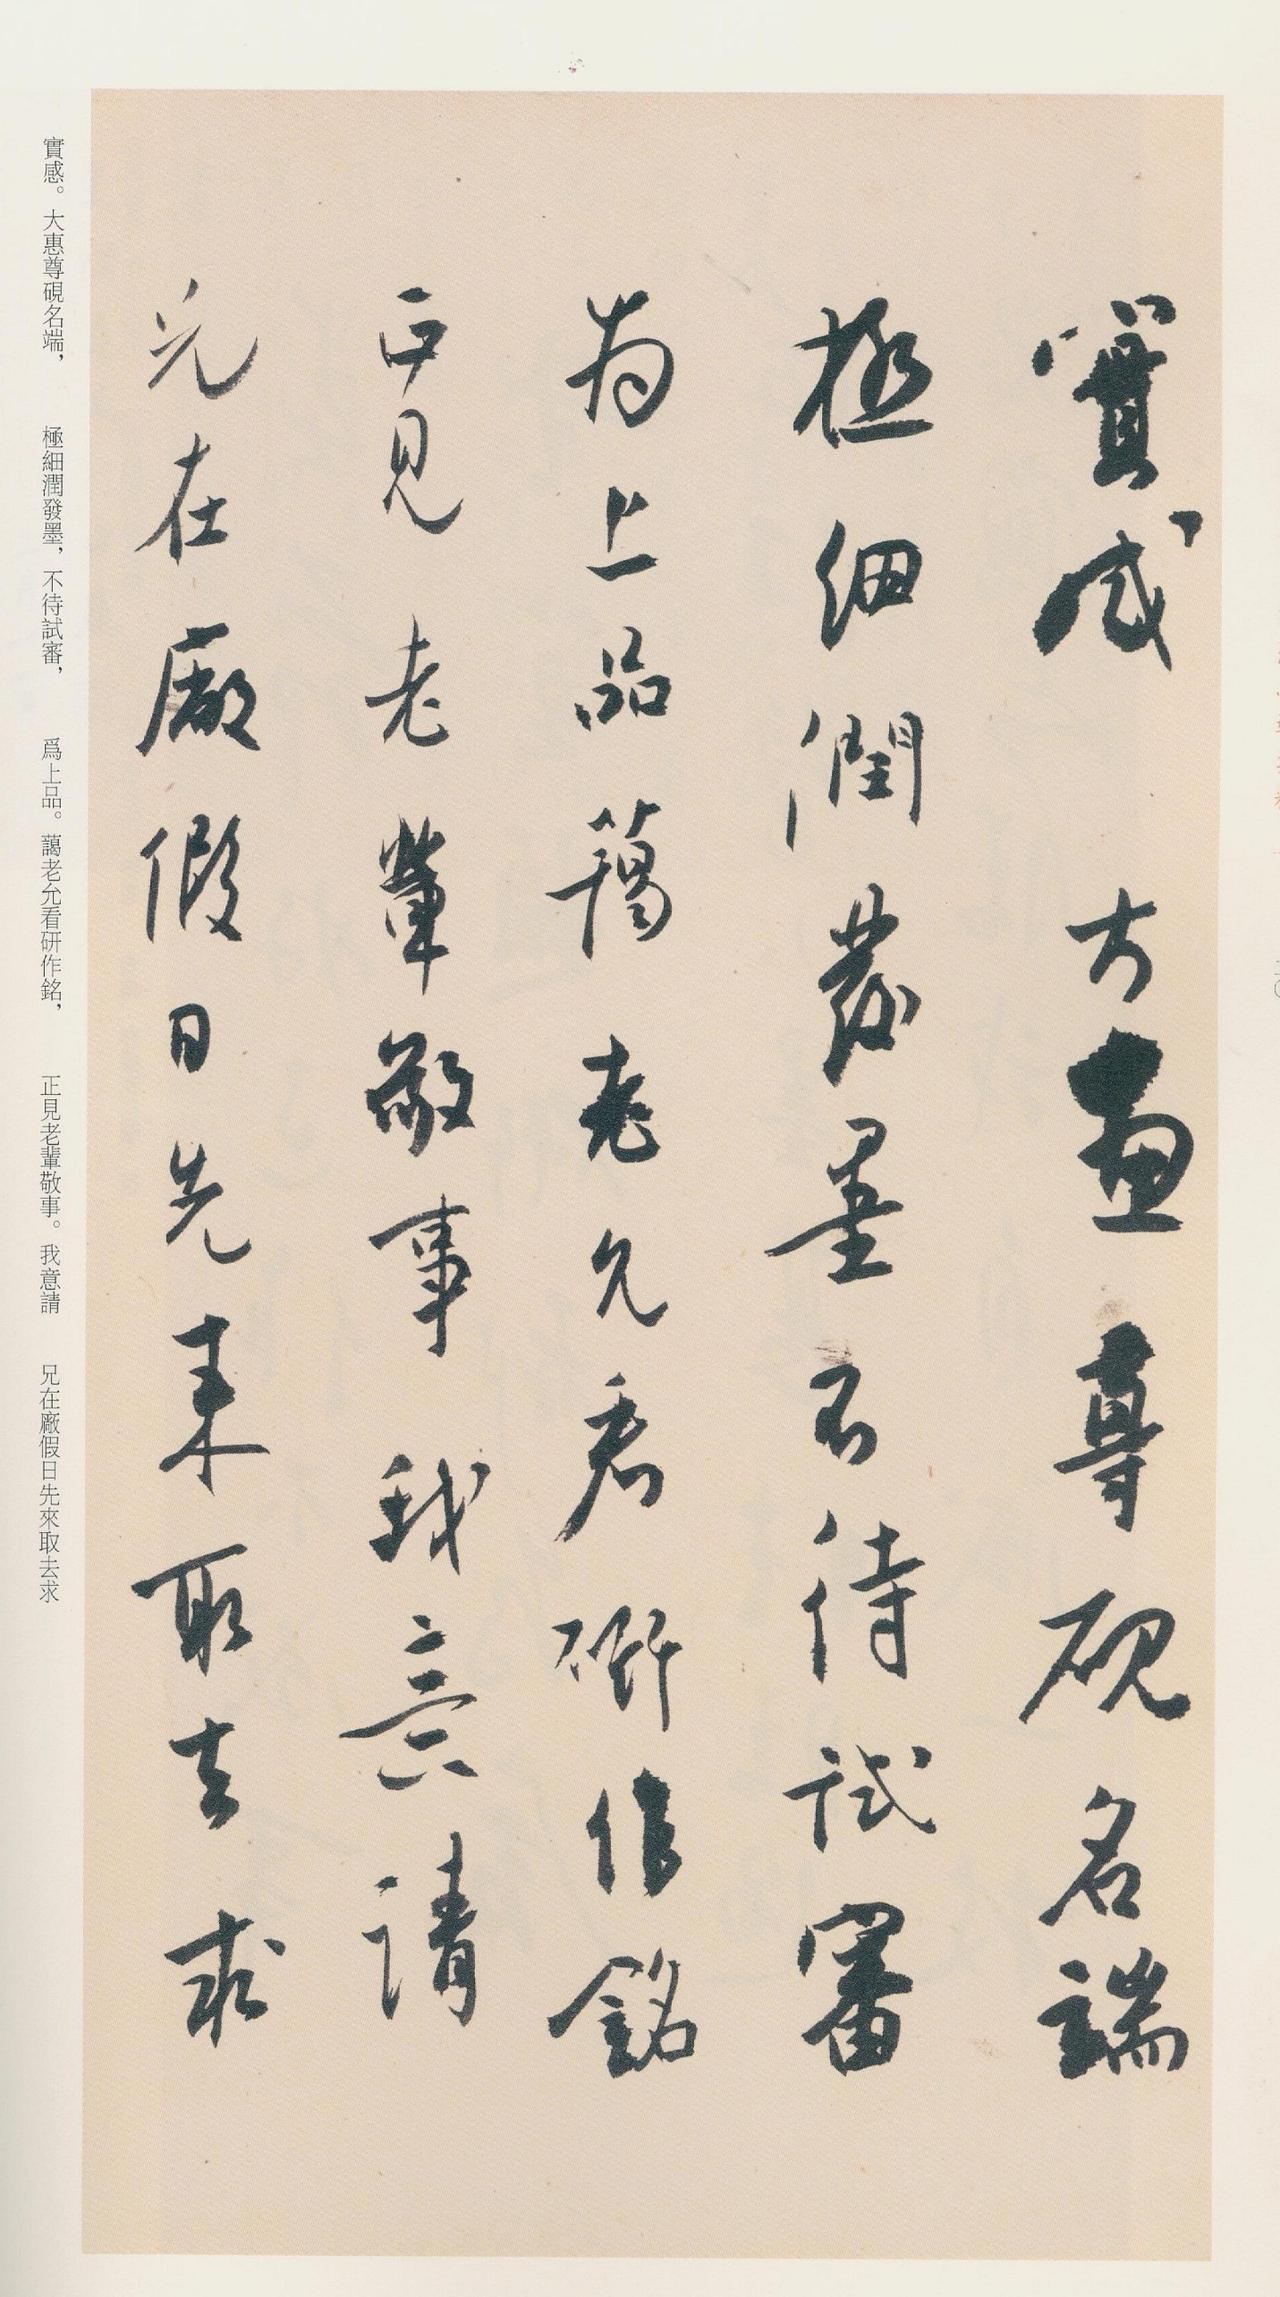 實感大惠尊硯名端
極細潤發墨不待試審
為上品藹老允看研作銘
正見老輩敬事我意請
兄在廠假日先来取去求
實感。大惠尊硯名端，　極細潤發墨，不待試審，　爲上品。藹老允看研作銘，　正見老輩敬事。我意請　兄在廠假日先來取去求